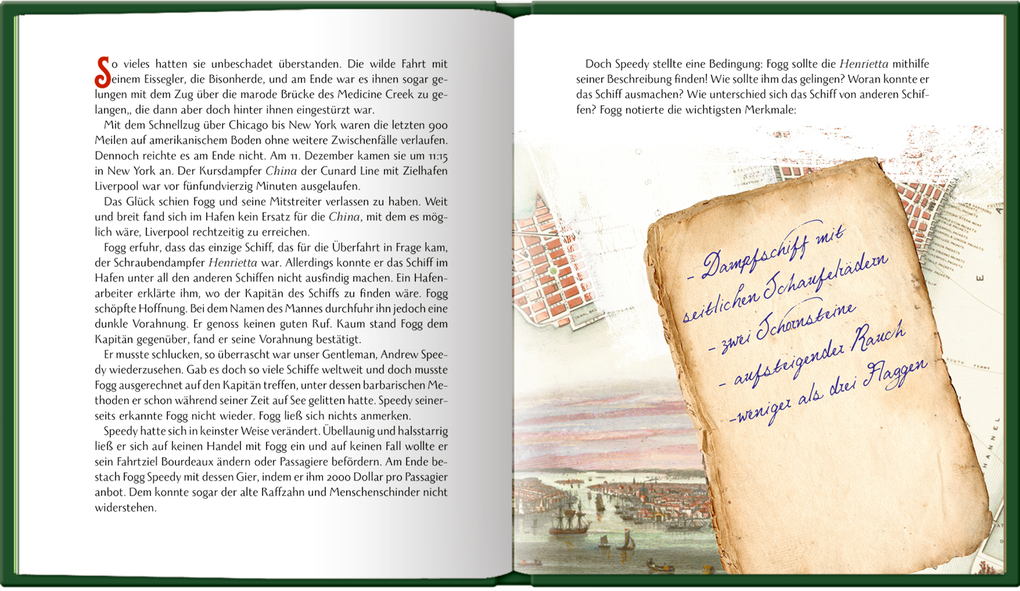 So vieles hatten sie unbeschadet überstanden. Die wilde Fahrt mit
einem Eissegler, die Bisonherde, und am Ende war es ihnen sogar ge-
lungen mit dem Zug über die marode Brücke des Medicine Creek zu ge-
langen,, die dann aber doch hinter ihnen eingestürzt war.
Mit dem Schnellzug über Chicago bis New York waren die letzten 900
Meilen auf amerikanischem Boden ohne weitere Zwischenfälle verlaufen.
Dennoch reichte es am Ende nicht. Am 11. Dezember kamen sie um 11:15
in New York an. Der Kursdampfer China der Cunard Line mit Zielhafen
Liverpool war vor fünfundvierzig Minuten ausgelaufen.
Das Glück schien Fogg und seine Mitstreiter verlassen zu haben. Weit
und breit fand sich im Hafen kein Ersatz für die China, mit dem es mög-
lich wäre, Liverpool rechtzeitig zu erreichen.
Fogg erfuhr, dass das einzige Schiff, das für die Überfahrt in Frage kam,
der Schraubendampfer Henrietta war. Allerdings konnte er das Schiff im
Hafen unter all den anderen Schiffen nicht ausfindig machen. Ein Hafen-
arbeiter erklärte ihm, wo der Kapitän des Schiffs zu finden wäre. Fogg
schöpfte Hoffnung. Bei dem Namen des Mannes durchfuhr ihn jedoch eine
dunkle Vorahnung. Er genoss keinen guten Ruf. Kaum stand Fogg dem
Kapitän gegenüber, fand er seine Vorahnung bestätigt.
Er musste schlucken, so überrascht war unser Gentleman, Andrew Spee-
dy wiederzusehen. Gab es doch so viele Schiffe weltweit und doch musste
Fogg ausgerechnet auf den Kapitän treffen, unter dessen barbarischen Me-
thoden er schon während seiner Zeit auf See gelitten hatte. Speedy seiner-
seits erkannte Fogg nicht wieder. Fogg ließ sich nichts anmerken.
Speedy hatte sich in keinster Weise verändert. Übellaunig und halsstarrig
ließ er sich auf keinen Handel mit Fogg ein und auf keinen Fall wollte er
sein Fahrtziel Bourdeaux ändern oder Passagiere befördern. Am Ende be-
stach Fogg Speedy mit dessen Gier, indem er ihm 2000 Dollar pro Passagier
anbot. Dem konnte sogar der alte Raffzahn und Menschenschinder nicht
widerstehen.
Doch Speedy stellte eine Bedingung: Fogg sollte die Henrietta mithilfe
seiner Beschreibung finden! Wie sollte ihm das gelingen? Woran konnte er
das Schiff ausmachen? Wie unterschied sich das Schiff von anderen Schif-
fen? Fogg notierte die wichtigsten Merkmale:
- Dampfschiff mit
seitlichen Schaufelrädern
- zwei Schornsteine
- aufsteigender Rauch
-weniger als drei Flaggen